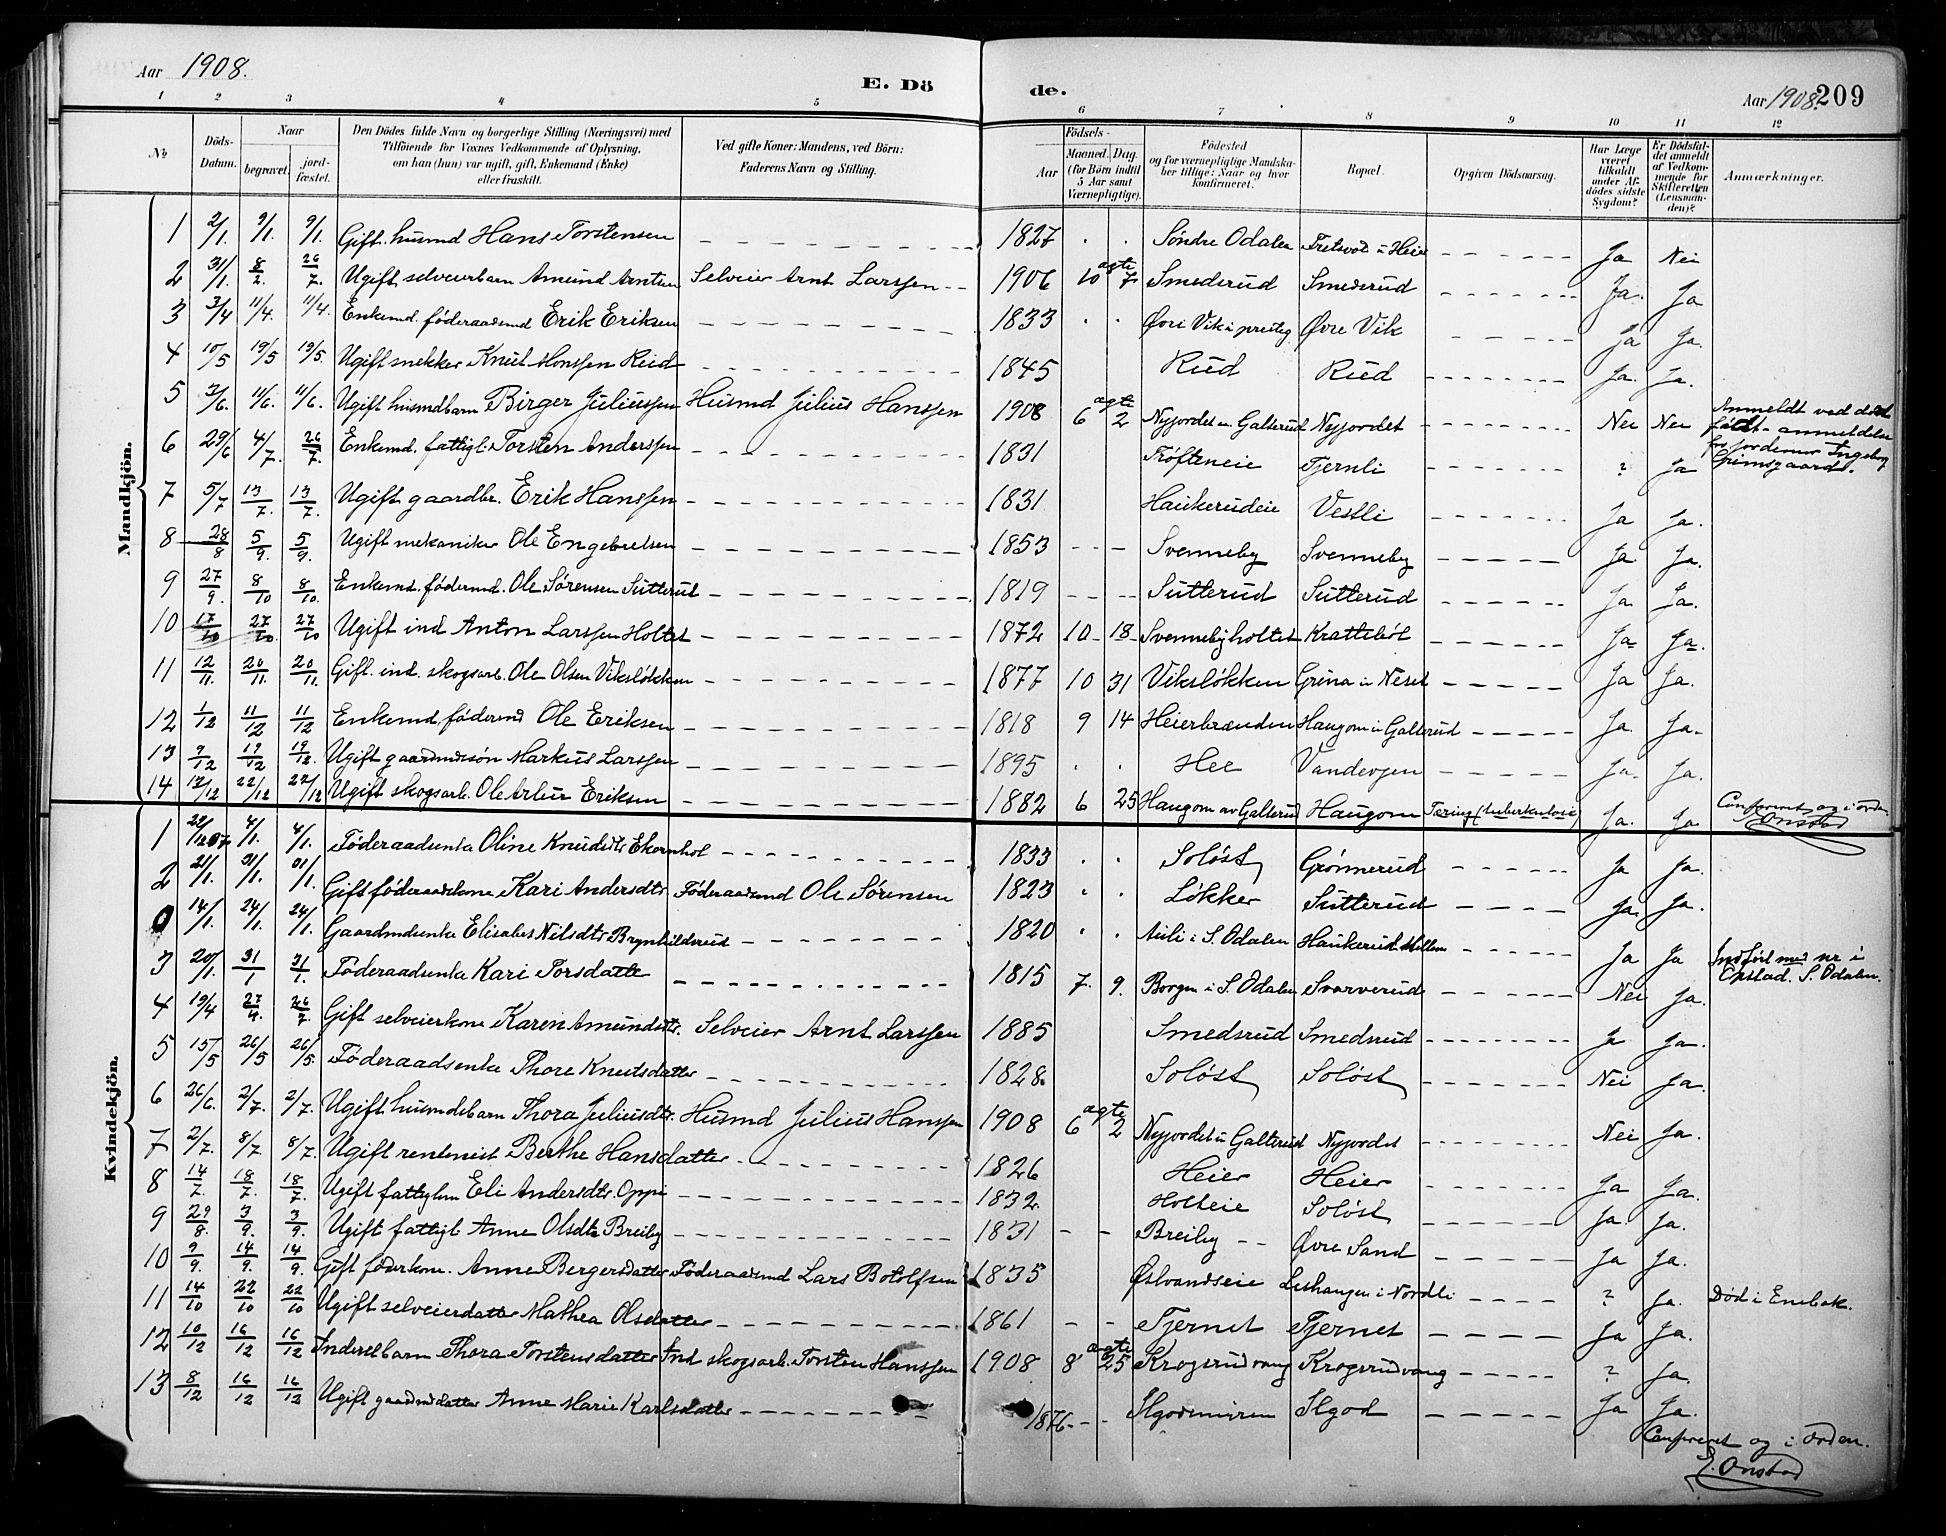 Aar 1908.
E. Dö de.
Aar 1908. 209
1 2 3 4 5 6 7 8 9 10 11 12
No
Döds-Datum.
Naar
begravet.
jordfæstet.
Den Dödes fulde Navn og borgerlige Stilling (Næringsvei) med Tilföiende for Voxnes Vedkommende af Oplysning, om han (hun) var ugift, gift, Enkemand (Enke) eller fraskilt.
Ved gifte Koner: Mandens, ved Börn: Faderens Navn og Stilling.
Födsels-
Aar
Maaned. Dag.
(for Börn indtil 5 Aar samt Værnepligtige).
Födested og for værnepligtige Mandskaber tillige: Naar og hvor konfirmeret.
Bopæl.
Opgiven Dödsaarsag.
Har Læge været tilkaldt under Afdödes sidste Sygdom?
Er Dödsfaldet anmeldt af Vedkommende for Skifteretten (Lensmanden)?
Anmærkninger.
Mandkjön.
1 2/1. 9/1. 9/1. Gift husmd Hans Torstensen 1827 Søndre Odalen Tretvod u Heier Ja Nei
2 31/1. 8/2. 26/7. Ugift selveierbarn Amund Arntsen Selveier Arnt Larssen 1906 10 agte 7 Smederud Smederud Ja. Ja
3 3/4 11/4. 11/4. Enkemd. føderaadsmd Erik Eriksen 1833 Øvre Vik i prestg Øvre Vik Ja Ja.
4 10/5 19/5 19/5. Ugift snekker Knut Monssen Rud 1845 Rud Rud Ja. Ja.
5 3/6. 11/6. 11/6. Ugift husmdbarn Birger Juliussen Husmd Julius Hanssen 1908 6 agte 2 Nyjordet u Galterud Nyjordet Nei Nei Anmeldt ved død født-anmeldelse fra jordemor Ingeborg Grimsgaard.
6 29/6 4/7. 26/7. Enkemd. fattigl. Torsten Anderssen 1831 Trøfteneie Tjernli ? Ja
7 5/7 13/7. 13/7. Ugift gaardbr. Erik Hanssen 1831 Haukerudeie Vestli Ja Ja.
8 28/8 5/9. 5/9. Ugift mekaniker Ole Engebretsen 1853 Svenneby Svenneby Ja Ja.
9 27/9. 8/10 8/10. Enkemd. fødermd. Ole Sørensen Sutterud 1819 Sutterud Sutterud Ja Ja.
10 17/10 27/10. 27/10 Ugift ind Anton Larssen Holtet 1872 10 18 Svennebyholtet Kratteböl Ja Ja.
11 12/11. 20/11. 20/11. Gift. ind. skogsarb. Ole Olsen Viksløkken 1877 10 31 Viksløkken Grina u Neset Ja Ja.
12 1/12 11/12 11/12 Enkemd. fødermd Ole Eriksen 1818 9 14 Heierbrænden Haugom u Galterud Ja Ja.
13 9/12 19/12 19/12. Ugift gaardmdssøn Markus Larssen 1895 Hee Vandevjen Ja. Ja.
14 12/12 22/12 22/12 Ugift skogsarb. Ole Artur Eriksen 1882 6 25 Haugom av Galterud Haugom Tæring (tuberkulose) Ja. Ja Confereret og i orden
Onstad
Kvindekjön.
1 22/12 07 4/1. 4/1. Føderaadsenke Oline Knudsdtr Ekornhol 1833 Soløst Grønnerud Ja Ja.
2 21/1. 31/1. 31/1. Gift føderaadskone Kari Andersdtr. Føderaadsmd Ole Sørensen 1823 Løkker Sutterud Ja. Ja.
0 14/1. 24/1. 24/1. Gaardmdsenke Elisabet Nilsdtr Brynhildsrud 1820 Auli i S. Odalen Haukerud Millem Ja Ja Indført med nr i Opstad. S. Odalen.
3 20/1. 31/1 31/1. Føderaadsenke Kari Torsdatter 1815 7. 9. Borgen i S. Odalen Svarverud Nei Ja.
4 19/4 27/4. 26/7. Gift selveierkone Karen Amundsdtr. Selveier Arnt Larssen 1885 Smedsrud Smedsrud Ja Ja.
5 15/5 26/5 26/5 Føderaadsenke Thore Knutsdatter 1828. Soløst Soløst Nei Ja.
6 26/6. 2/7. 2/7. Ugift husmdsbarn Thora Juliusdtr. Husmd Julius Hanssen 1908 6 agte 2 Nyjordet u Galterud Nyjordet Nei Ja.
7 2/7. 8/7 8/7. Ugift rentenist Berthe Hansdatter 1826 Heier Heier Ja Ja.
8 14/7. 18/7. 18/7. Ugift fattiglem Eli Andersdtr. Oppi 1832 Holteie Soløst Ja. Ja.
9 29/8. 3/9. 3/9. Ugift fattigl. Anne Olsdtr Breiby 1831 Breiby Øvre Sand Ja Ja.
10 9/9. 14/9. 14/9. Gift føderkone. Anne Bergersdatter Føderaadsmd Lars Botolfsen 1835 Østvandseie Lishaugen i Nordli ? Ja. Død i Enebak.
11 14/10 22/10 22/10 Ugift selveierdatter Mathea Olsdatter 1861 Tjernet Tjernet Ja Ja.
12 10/12 16/12 16/12 Inderstbarn Thora Torstensdatter Ind skogsarb. Torsten Hanssen 1908 8 agte 25 Krogsrudvang Krogsrudvang ? Ja.
13 8/12 16/12 16/12 Ugift gaardmdsdatter Anne Marie Karlsdatter 1876 Ilgodsmyren Ilgod Ja Ja.
Confereret og i orden.
E. Onstad